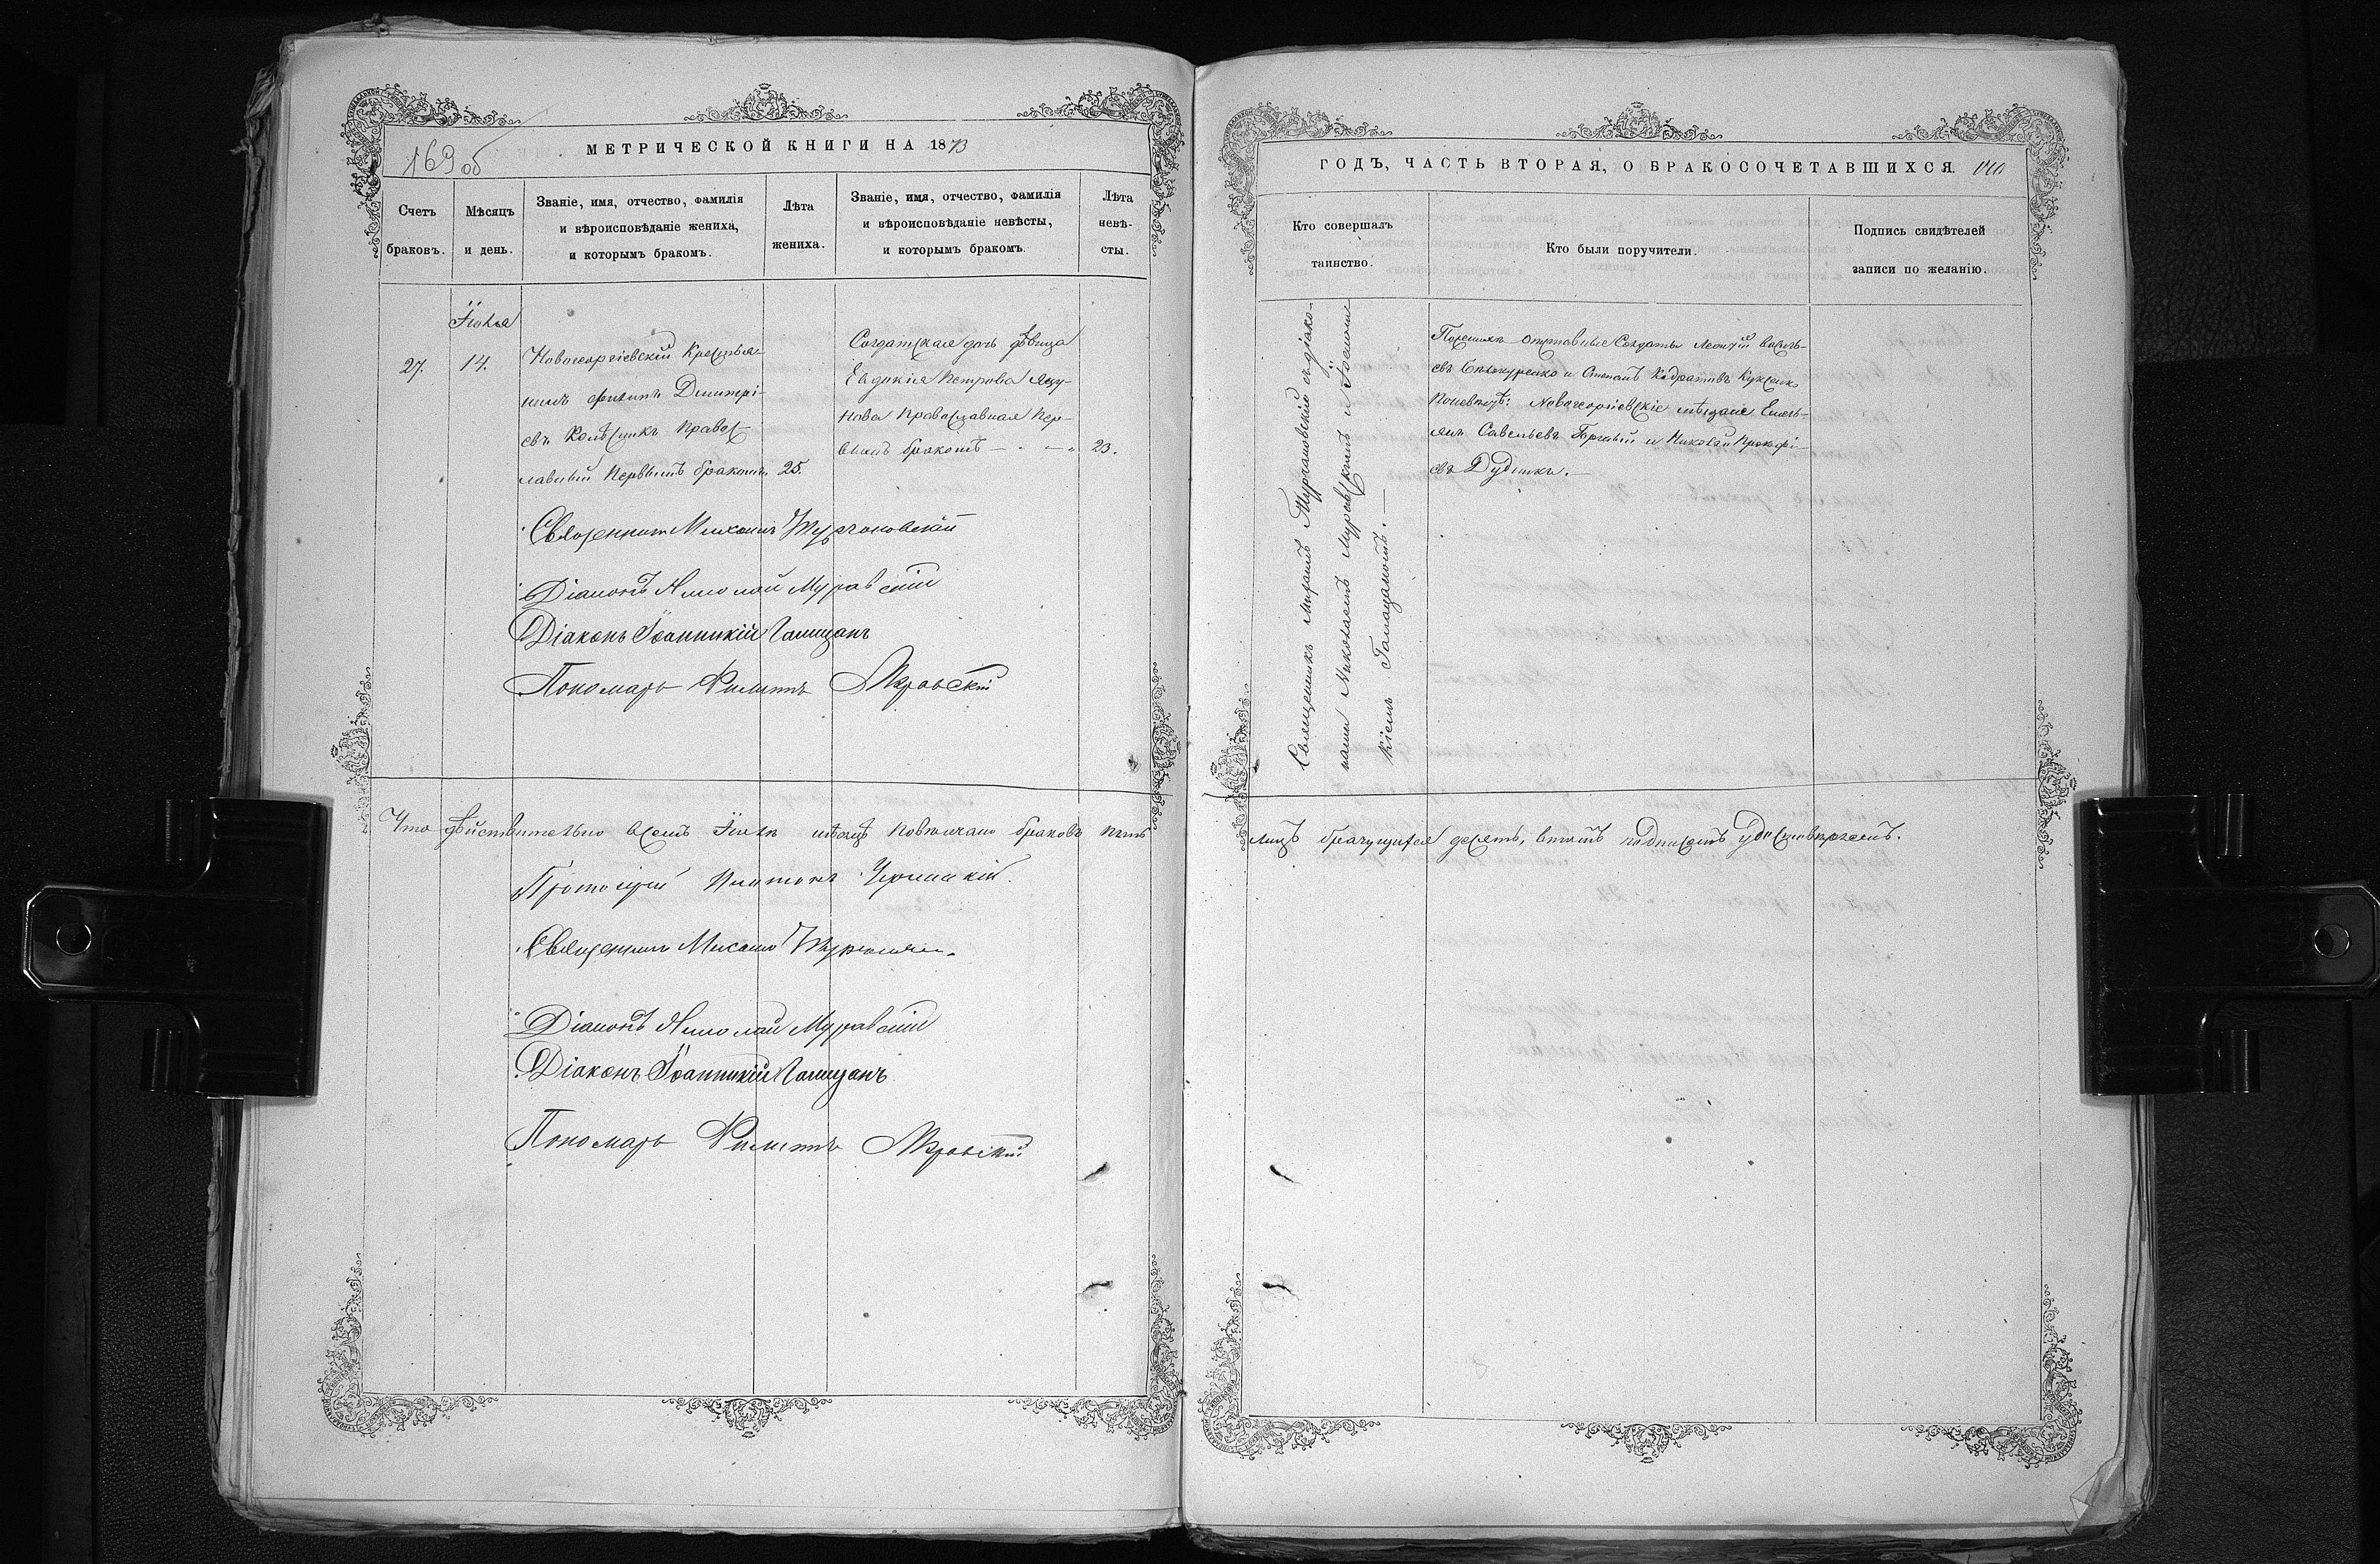 169 об
МЕТРИЧЕСКОЙ КНИГИ НА 1873
Счетъ браковъ.
Мѣсяцъ и день.
Званіе, имя, отчество, фамилія
и вѣроисповѣданіе жениха,
и которымъ бракомъ.
Лѣта жениха.
Званіе, имя, отчество, фамилія
и вѣроисповѣданіе невѣсты,
и которымъ бракомъ.
Лѣта невѣ-
сты.
27.
14.
Новогеоргіевскій крестья-
нинъ Филипъ Димитрі-
евъ Колѣсникъ Правос-
лавный первымъ бракомъ.
25.
Солдатская дочь дѣвица
Евдокія Петрова
нова Православная пер-
вымъ бракомъ
23.
Священникъ Михаилъ
Діаконъ Николай Муравскій
Діаконъ Іоанникій
Пономарь Филиппъ
Что дѣйствительно всемъ мѣсяцѣ повѣнчано браковъ пять
Протоіерей Платонъ
Священникъ Михаилъ
Діаконъ Николай Муравскій
Діаконъ Іоанникій
Пономарь Филиппъ
ГОДЪ, ЧАСТЬ ВТОРАЯ, О БРАКОСОЧЕТАВШИХСЯ. 170
Кто совершалъ
таинство.
Кто были поручители.
Подпись свидѣтелей
записи по желанію.
Священникъ Михаилъ съ діако-
нами Николаемъ Муравскимъ и Іоанни-
кіемъ
По женихѣ отставные солдаты Леонтій Василь-
евъ Бѣлокуренко и Степанъ Кодратовъ
По невѣстѣ: Новогеоргіевскіе мѣщане Емель-
янъ Савельевъ и Николай Прокофі-
евъ Дудникъ.
лицъ брачущихся десять, въ томъ подписомъ удостовѣряемъ.